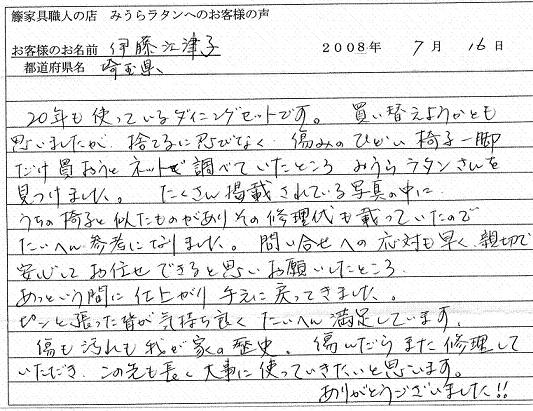 籐家具職人の店 みうらラタンへのお客様の声
お客様のお名前 伊藤江津子 2008年 7月 16日
都道府県名 埼玉県
20年も使っているダイニングセットです。買い替えようかとも
思いましたが、捨てるに忍びなく、傷みのひどい椅子一脚
だけ買おうとネットで調べていたところ みうらラタンさんを
見つけました。たくさん掲載されている写真の中に
うちの椅子と似たものがありその修理代も載っていたので
たいへん参考になりました。問い合せへの応対も早く、親切で
安心してお任せできると思いお願いしたところ、
あっという間に仕上がり手元に戻ってきました。
ピンと張った皆が気持ち良くたいへん満足しています。
傷も汚れも我が家の歴史。傷んだらまた修理して
いただき、この先も長く大事に使っていきたいと思います。
ありがとうございました!!